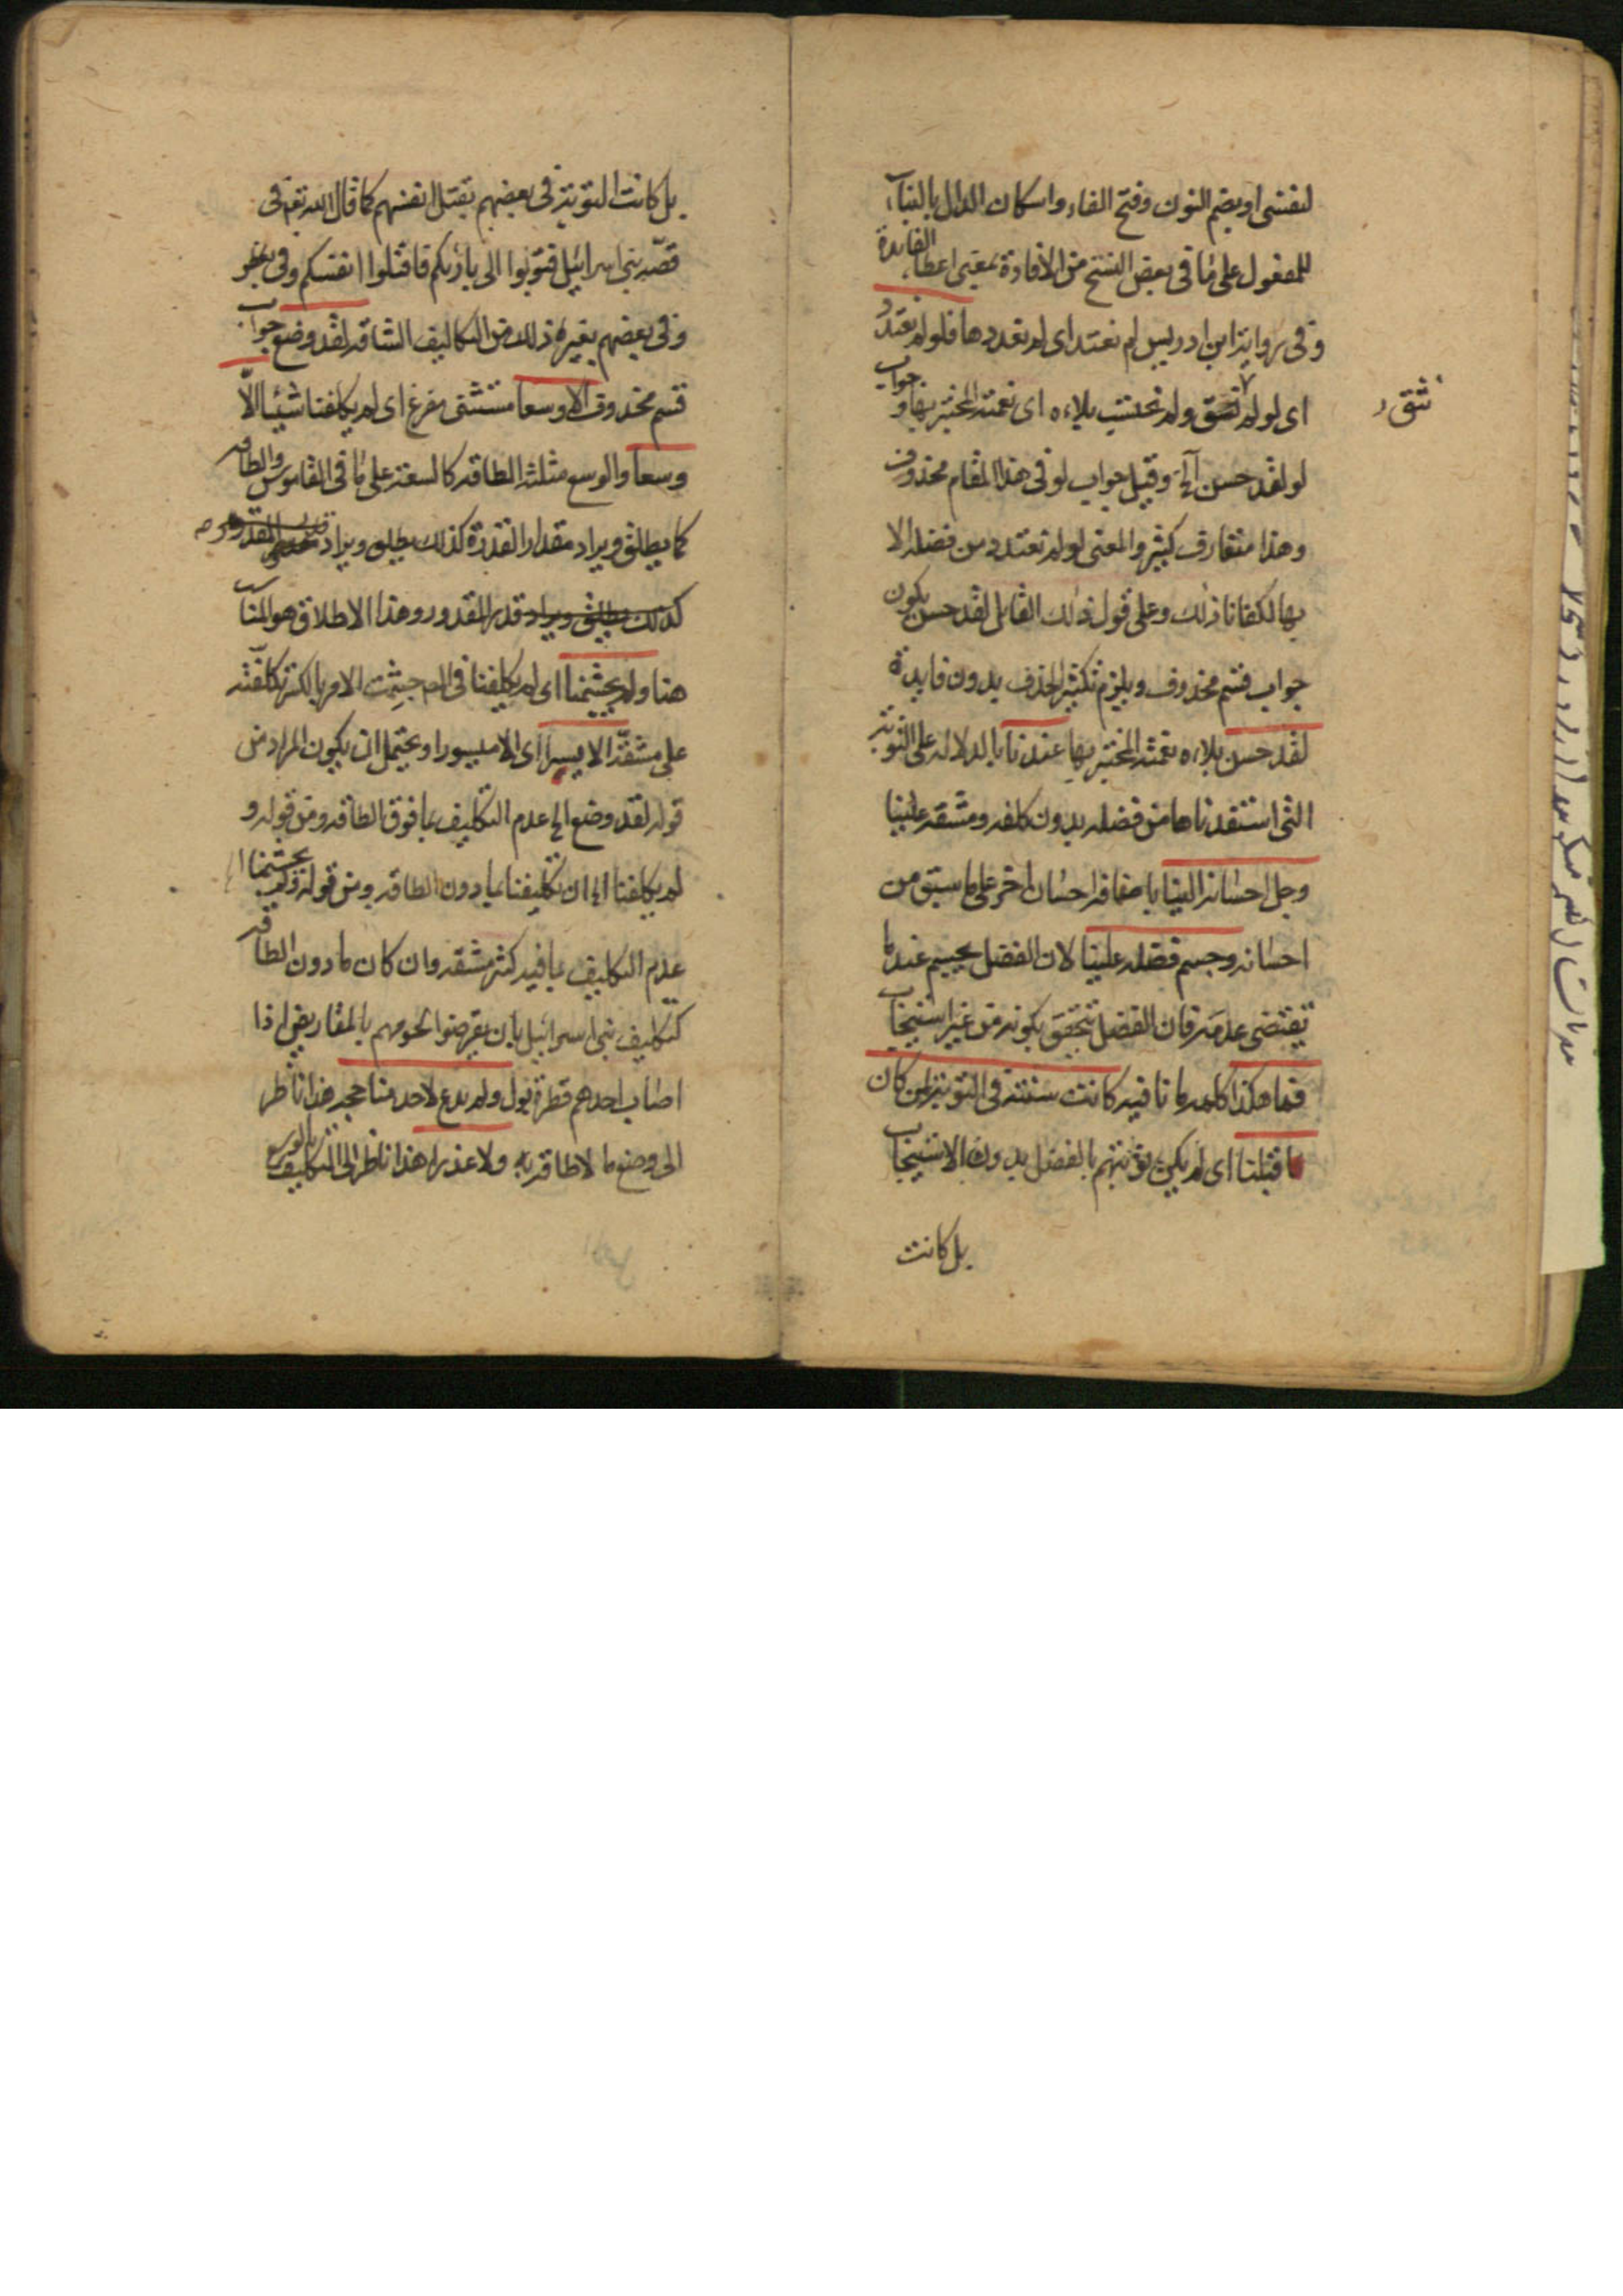 لنفسى او بضم النون وفتح الفاء واسكان الدال بالبناء
للمفعول على ما فى بعض النسخ من الافادة بمعنى اعطاء الفايدة
وفى رواية ابن ادريس لم نعتد اى لم نعدد ها فلو لم نعتدد
اى لو لم نثق ولم نحتسب بلاءه اى نعمته المختبر بها وجواب
لو لقد حسن آلخ وقيل جواب لو فى هذا المقام محذوف
وهذا متعارف كثير والمعنى لو لم نعتدد من فضله الا
بها لكفانا ذلك وعلى قول ذلك القايل لقد حسن يكون
جواب قسم محذوف ويلزم تكثير الحذف بدون فايدة
لقد حسن بلاءه نعمته المختبر بها عندنا بالدلالة على التوبة
التى استفدناها من فضله بدون كلفه ومشقه علينا
وجل احسانه الينا باضافه احسان اخر على ما سبق من
احسانه وجسم فضله علينا لان الفضل بجسيم عندما
يقتضى عدمه فان الفضل يتحقق بكونه من غير استيجاب
فما هكذا كلمه ما نافيه كانت سنته فى التوبة لمن كان
قبلنا اى لم يكن توبتهم بالفضل بدون الاستيجاب
بل كانت
نثق
بل كانت التوبة فى بعضهم بقتل انفسهم كما قال الله تع فى
قصه بنى اسرائيل فتوبوا الى بارئكم فاقتلوا انفسكم
وفى بعضهم بغيره ذلك من التكاليف الشاقه لقد وضع جواب
قسم محذوف الا وسعا مستثنى مفرغ اى لم يكلفنا شيئا الّا
وسعا والوسع مثلثه الطاقه كالسعة على ما فى القاموس والطاقه
كما يطلق ويراد مقدار القدرة كذلك يطلق ويراد
كذلك يطلق ويراد قدر المقدور وهذا الاطلاق هو المناسب
هنا ولم يجشمنا اى لم يكلفنا فى الصحاح جشمت الامر بالكسر تكلفته
على مشقه الا يسرا اى الا ميسورا ويحتمل ان يكون المراد من
قوله لقد وضع الخ عدم التكليف بما فوق الطاقه ومن قوله و
لم يكلفنا الخ ان تكليفنا بما دون الطاقه ومن قوله ولم يجشمنا الخ
عدم التكليف بما فيه كثر مشقه وان كان ما دون الطاقه
كتكليف بنى اسرائيل بان يقرضوا لحومهم بالمقاريض اذا
اصاب احدهم قطرة بول ولم يدع لاحد منا حجه هذا ناظر
الى وضع ما لا طاقه به ولا عذرا هذا ناظر الى التكليف بالوسع